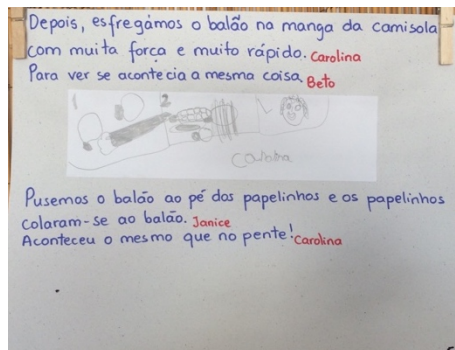 Depois, esfregámos o balão na manga da camisola
com muita força e muito rápido. Carolina
Para ver se acontecia a mesma coisa. Beto
1 2
Carolina
Pusemos o balão ao pé das papelinhos e os papelinhos
colaram-se ao balão. Janice
Aconteceu o mesmo que no pente! Carolina